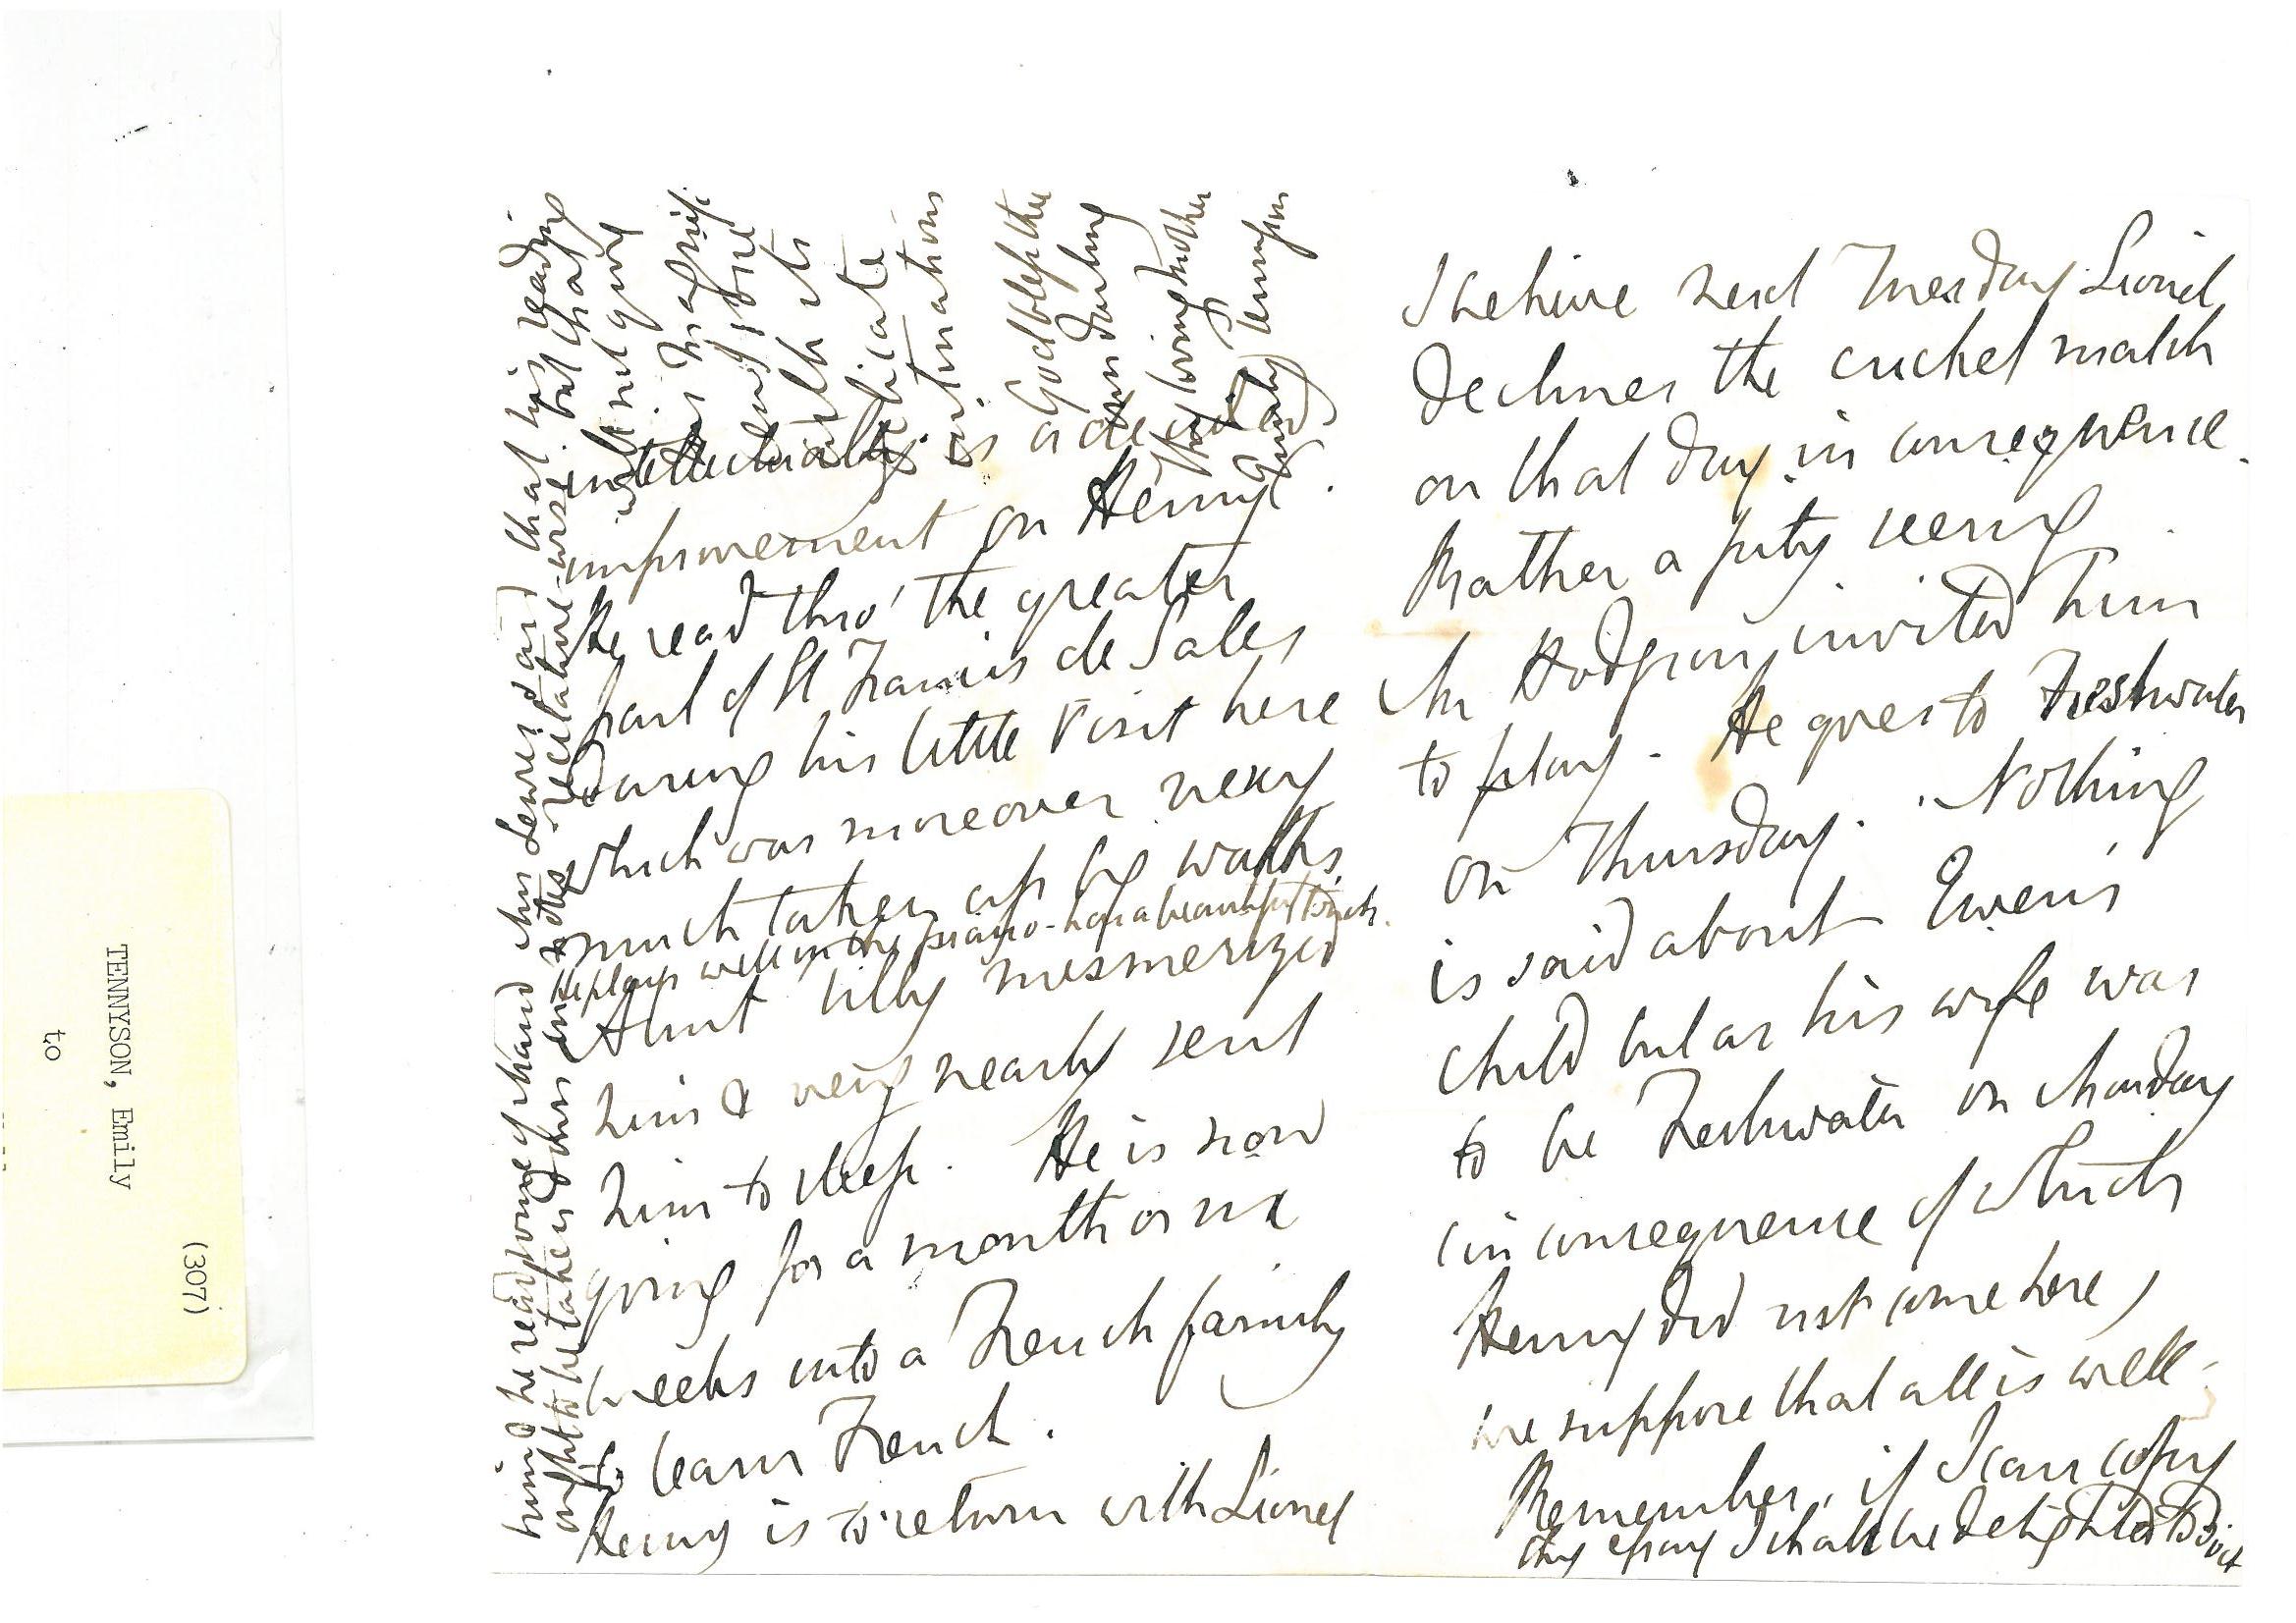 intellectually is a decided
improvement on Henry.
He read thro' the greater
part of St Francis de Sales
during his little visit here
which was moreover very
much taken up by walks.
He plays well on the piano - has a beautiful touch.
Aunt Tilly mesmerized
him & very nearly sent
him to sleep. He is now
going for a month or six
weeks into a French family
to learn French.
Henry is to return with Lionel
I believe next Tuesday. Lionel
declines the cricket match
on that day in consequence.
Rather a pity seeing
Mr Hodgson invited him
to play. He goes to Freshwater
on Thursday. Nothing
is said about Ewen's
child but as his wife was
to be Freshwater on Monday
(in consequence of which
Henry did not come here)
we suppose that all is well.
Remember, if I can copy
thy essay I shall be delighted to do it
mind he read some of hand Mrs Lewes said that his reading
ought to be taken down in notes recitative-wise but that
not give
his magnifi
organ tone
with its
delicate
intonations
God bless thee
own darling
Thy loving mother
Emily Tennyson
TENNYSON, Emily
to
(307)